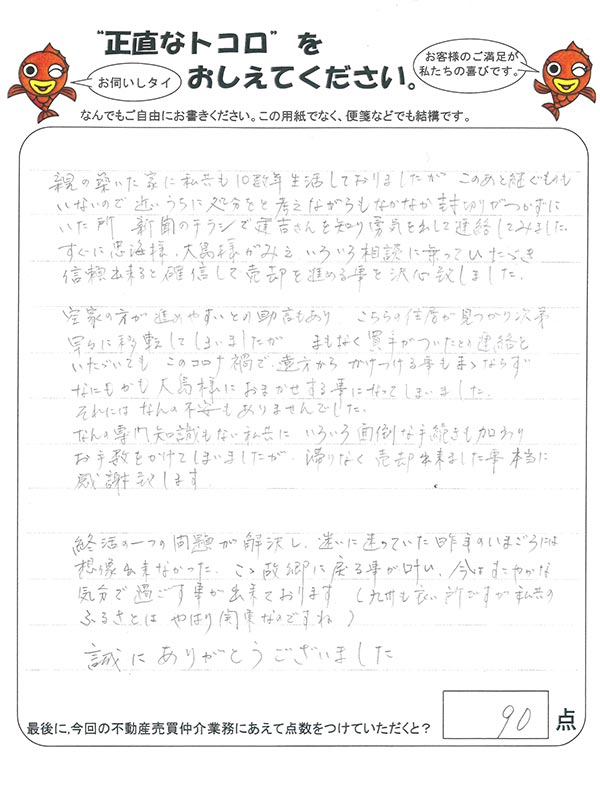 "正直なトコロ"を
おしえてください。
お伺いしタイ
お客様のご満足が
私たちの喜びです。
なんでもご自由にお書きください。この用紙でなく、便箋などでも結構です。
親の築いた家に私共も10数年生活しておりましたが このあと継ぐものも
いないので近いうちに処分をと考えながらもなかなか封切りがつかずに
いた所 新聞のチラシで蓮吉さんを知り勇気を出して連絡してみました
すぐに忠海様、大島様がみえ いろいろ相談に乗っていただき
信頼出来ると確信して売却を進める事を決心致しました。
空家の方が進めやすいとの助言もあり こちらの住居が見つかり次第
早々に移転してしまいましたが まもなく買手がついたとの連絡を
いただいても このコロナ禍で遠方から かけつける事もまゝならず
なにもかも大島様におまかせする事になってしまいました。
それにはなんの不安もありませんでした。
なんの専門知識もない私共に いろいろ面倒な手続きも加わり
お手数をかけてしまいましたが、滞りなく売却出来ました事本当に
感謝致します
終活の一つの問題が解決し、迷いに迷っていた昨年のいまごろには
想像出来なかった、こゝ故郷に戻る事が叶い、今はすこやかな
気分で過ごす事が出来ております (九州も良い所ですが私共の
ふるさとは やはり関東なのですね)
誠にありがとうございました
最後に,今回の不動産売買仲介業務にあえて点数をつけていただくと? 90 点